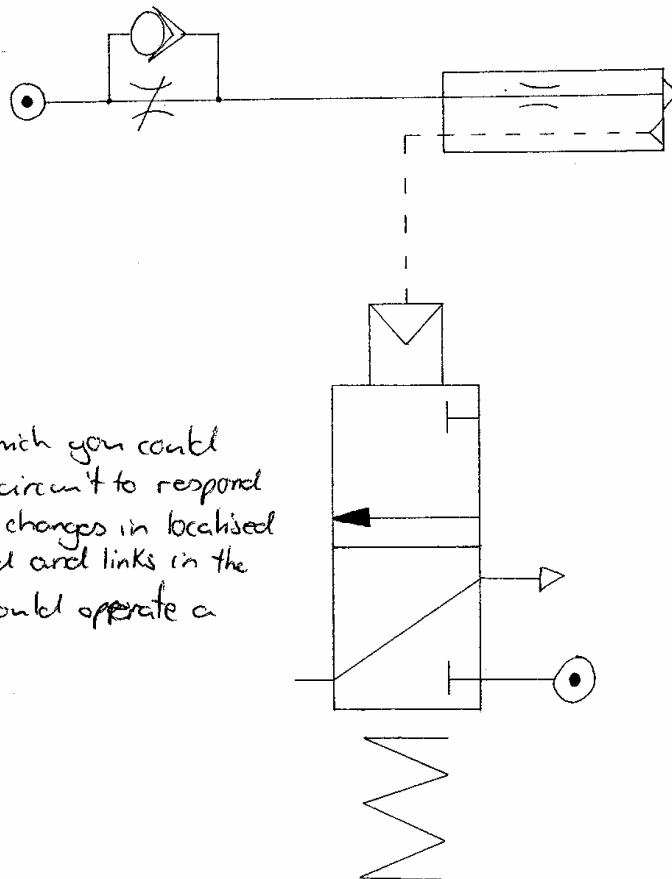 which you could
circuit to respond
changes in localised
and links in the
could operate a